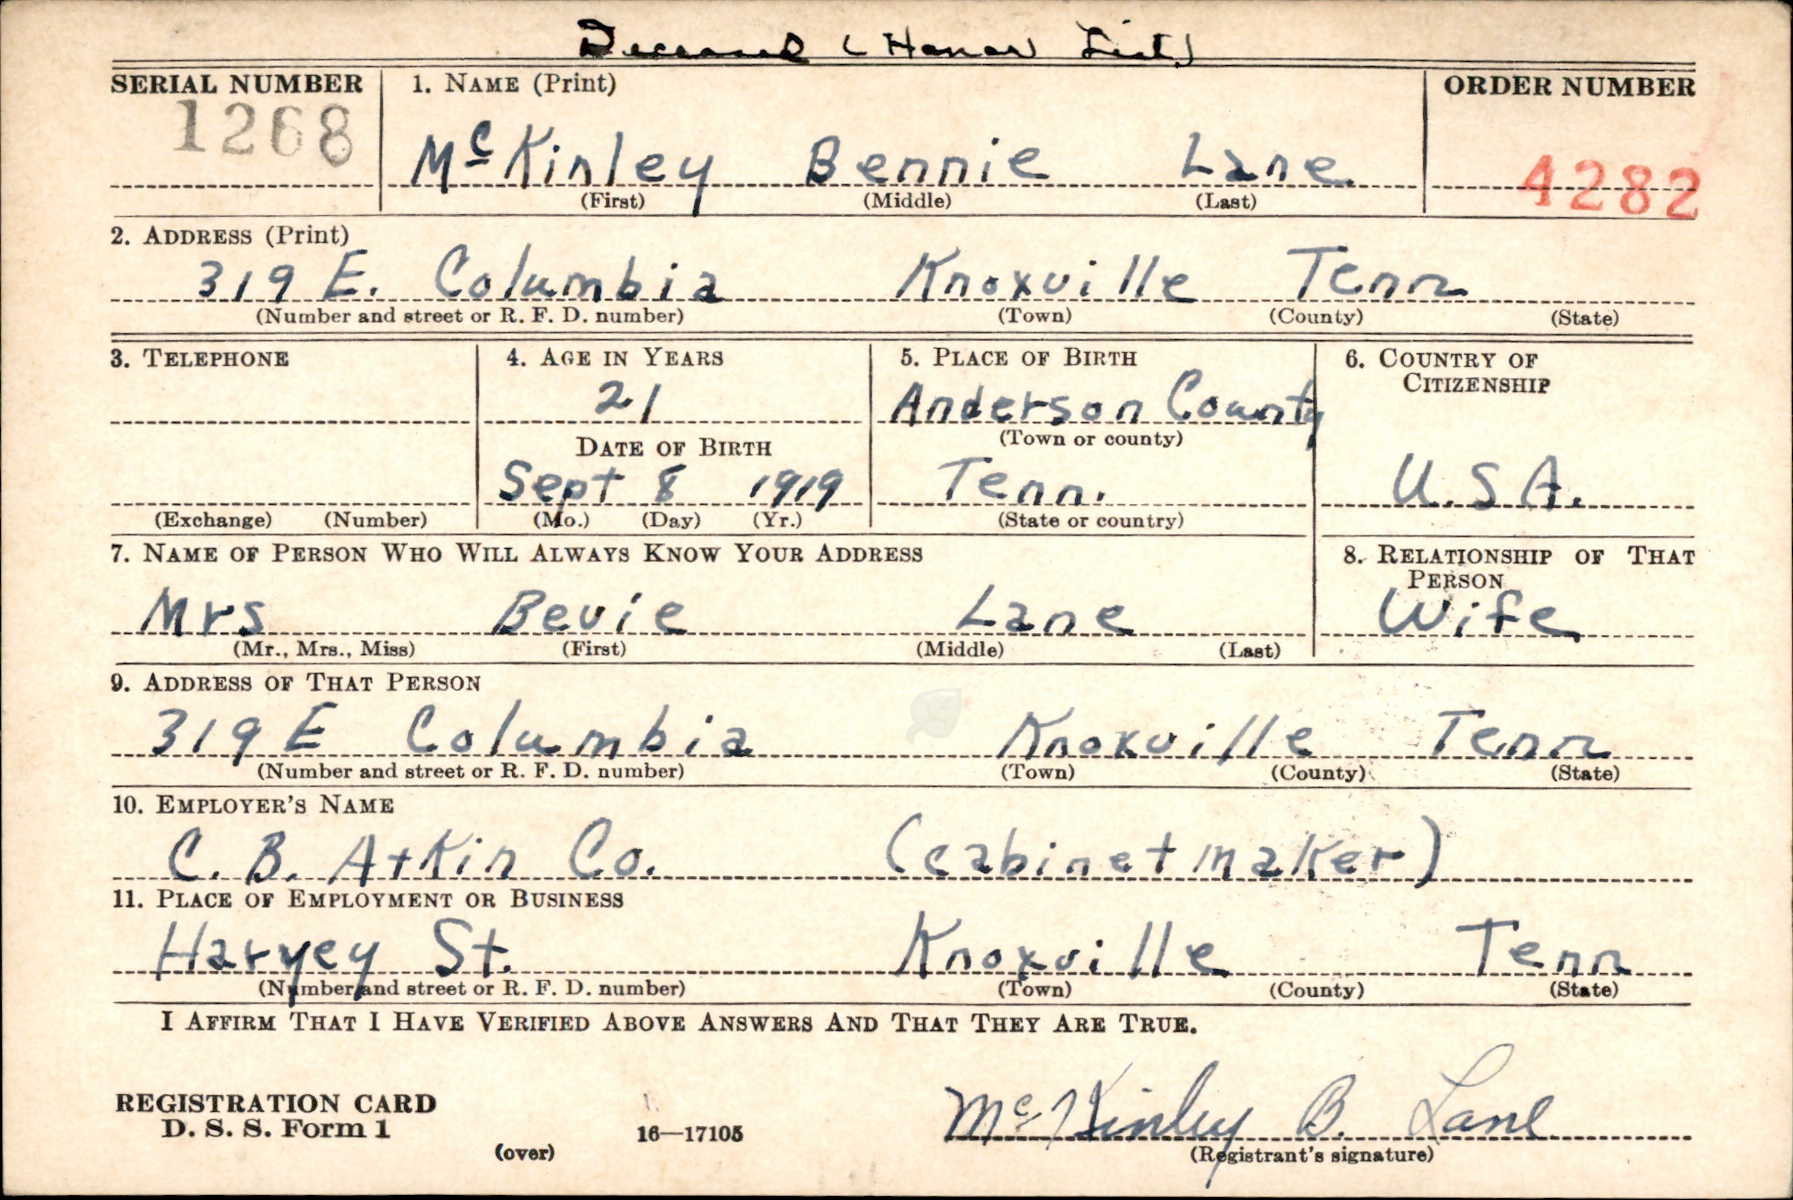 Deceased (Honor List)
SERIAL NUMBER 1. NAME (Print) ORDER NUMBER
1268 McKinley Bennie Lane 4282
(First) (Middle) (Last)
2. ADDRESS (Print)
319 E. Columbia Knoxville Tenn
(Number and street or R. F. D. number) (Town) (County) (State)
3. TELEPHONE 4. AGE IN YEARS 5. PLACE OF BIRTH 6. COUNTRY OF
CITIZENSHIP
21 Anderson County
DATE OF BIRTH (Town or county)
Sept 8 1919 Tenn. U.S.A.
(Exchange) (Number) (Mo.) (Day) (Yr.) (State or country)
7. NAME OF PERSON WHO WILL ALWAYS KNOW YOUR ADDRESS 8. RELATIONSHIP OF THAT
PERSON
Mrs Bevie Lane Wife
(Mr., Mrs., Miss) (First) (Middle) (Last)
9. ADDRESS OF THAT PERSON
319 E Columbia Knoxville Tenn
(Number and street or R. F. D. number) (Town) (County) (State)
10. EMPLOYER'S NAME
C. B. Atkin Co. (cabinet maker)
11. PLACE OF EMPLOYMENT OR BUSINESS
Harvey St. Knoxville Tenn
(Number and street or R. F. D. number) (Town) (County) (State)
I AFFIRM THAT I HAVE VERIFIED ABOVE ANSWERS AND THAT THEY ARE TRUE.
REGISTRATION CARD
D. S. S. Form 1 16—17105 McKinley B. Lane
(over) (Registrant's signature)